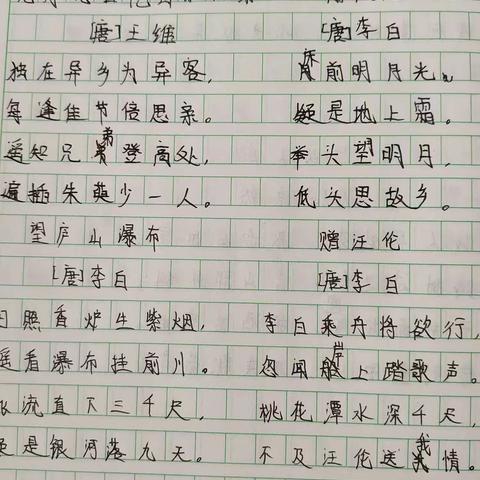 [唐]王维
独在异乡为异客,
每逢佳节倍思亲。
遥知兄弟登高处,
遍插朱少一人。
[唐]李白
床前明月光。
疑是地上霜。
举头望明月,
低头思故乡。
望庐山瀑布
[唐]李白
日照香炉生紫烟,
遥看瀑布挂前川。
飞流直下三千尺,
疑是银河落九天。
赠汪伦
[唐]李白
李白乘舟将欲行,
忽闻岸上踏歌声。
桃花潭水深千尺,
不及汪伦送我情。